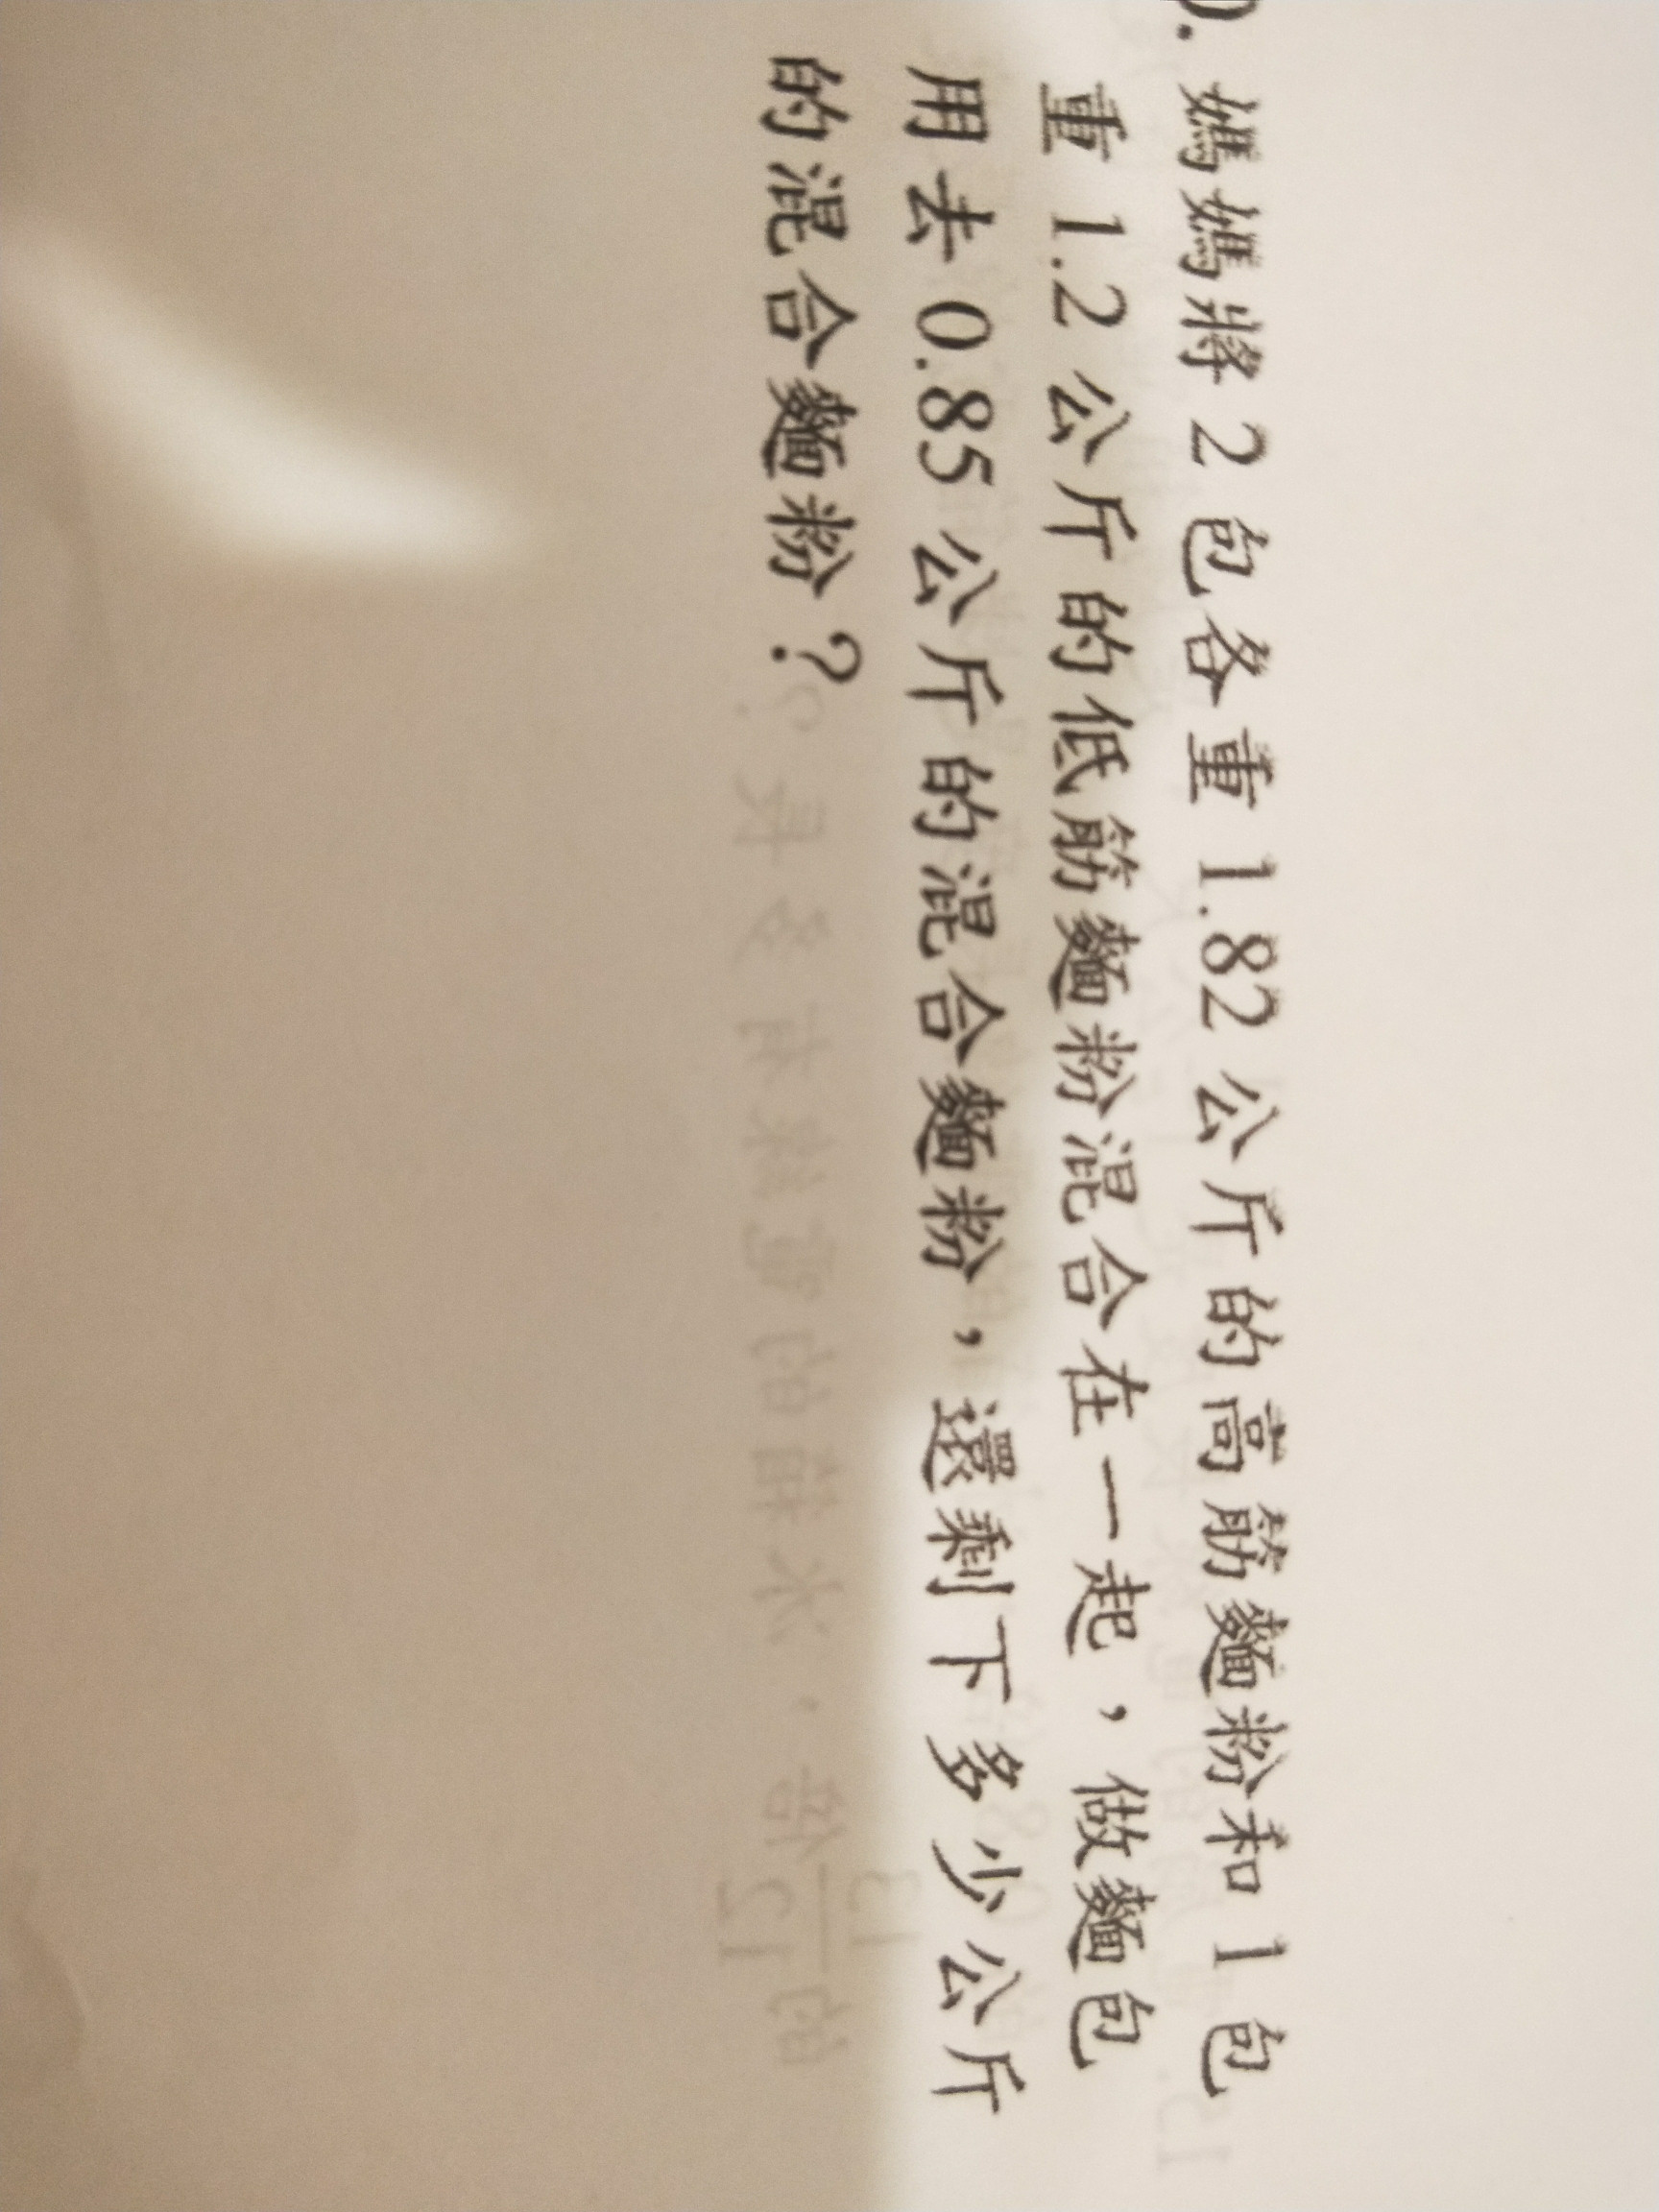 0. 媽媽將 2 包各重 1.82 公斤的高筋麵粉和 1 包
重 1.2 公斤的低筋麵粉混合在一起，做麵包
用去 0.85 公斤的混合麵粉，還剩下多少公斤
的混合麵粉？